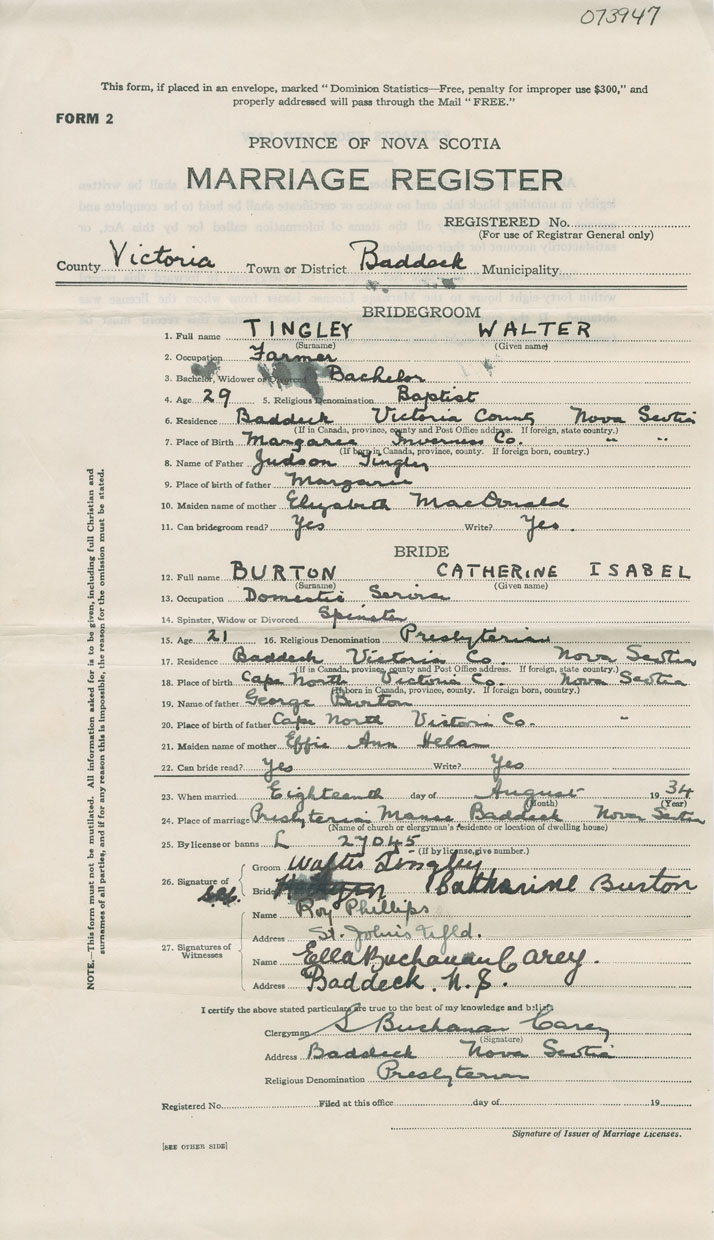 073947
This form, if placed in an envelope, marked "Dominion Statistics—Free, penalty for improper use $300," and
properly addressed will pass through the Mail "FREE."
FORM 2
PROVINCE OF NOVA SCOTIA
MARRIAGE REGISTER
REGISTERED No.
(For use of Registrar General only)
County Victoria Town or District Baddeck Municipality
BRIDEGROOM
1. Full name TINGLEY WALTER
(Surname) (Given name)
2. Occupation Farmer
3. Bachelor, Widower or Divorced Bachelor
4. Age 29 5. Religious Denomination Baptist
6. Residence Baddeck Victoria County Nova Scotia
(If in Canada, province, county and Post Office address. If foreign, state country.)
7. Place of Birth Margaree Inverness Co. " "
(If born in Canada, province, county. If foreign born, country.)
8. Name of Father Judson Tingley
9. Place of birth of father Margaree
10. Maiden name of mother Elizabeth MacDonald
11. Can bridegroom read? Yes Write? Yes.
BRIDE
12. Full name BURTON CATHERINE ISABEL
(Surname) (Given name)
13. Occupation Domestic Service
14. Spinster, Widow or Divorced Spinster
15. Age 21 16. Religious Denomination Presbyterian
17. Residence Baddeck Victoria Co. Nova Scotia
(If in Canada, province, county and Post Office address. If foreign, state country.)
18. Place of birth Cape North Victoria Co. Nova Scotia
(If born in Canada, province, county. If foreign born, country.)
19. Name of father George Burton
20. Place of birth of father Cape North Victoria Co. "
21. Maiden name of mother Effie Ann
22. Can bride read? Yes Write? Yes
23. When married Eighteenth day of August 1934
(Month) (Year)
24. Place of marriage Presbyterian Manse Baddeck Nova Scotia
(Name of church or clergyman's residence or location of dwelling house)
25. By license or banns L 27045
(If by license, give number.)
26. Signature of Groom Walter Tingley
Bride Catharine Burton
27. Signatures of Witnesses
Name Roy Phillips
Address St. John's Nfld.
Name Ella Buchanan Carey.
Address Baddeck. N.S.
I certify the above stated particulars are true to the best of my knowledge and belief.
Clergyman S Buchanan Carey
(Signature)
Address Baddeck Nova Scotia
Religious Denomination Presbyterian
Registered No. Filed at this office day of 19
Signature of Issuer of Marriage Licenses.
[SEE OTHER SIDE]
NOTE.—This form must not be mutilated. All information asked for is to be given, including full Christian and
surnames of all parties, and if for any reason this is impossible, the reason for the omission must be stated.